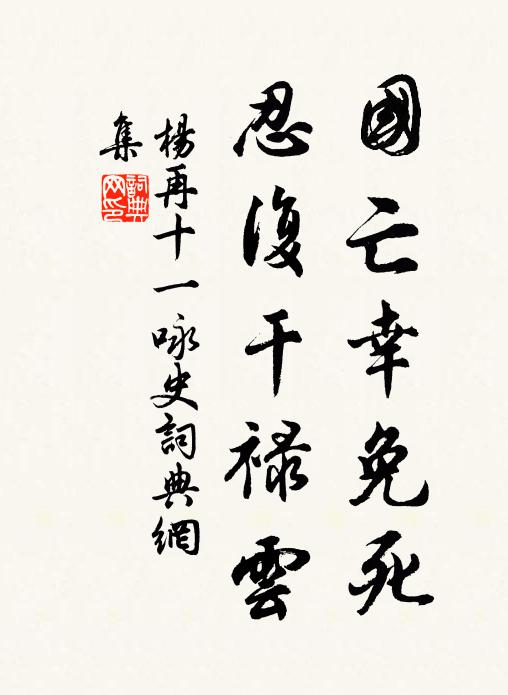 國亡幸免死
忍復干祿雲
楊再十一詠史詞典網
集
詞典
网印